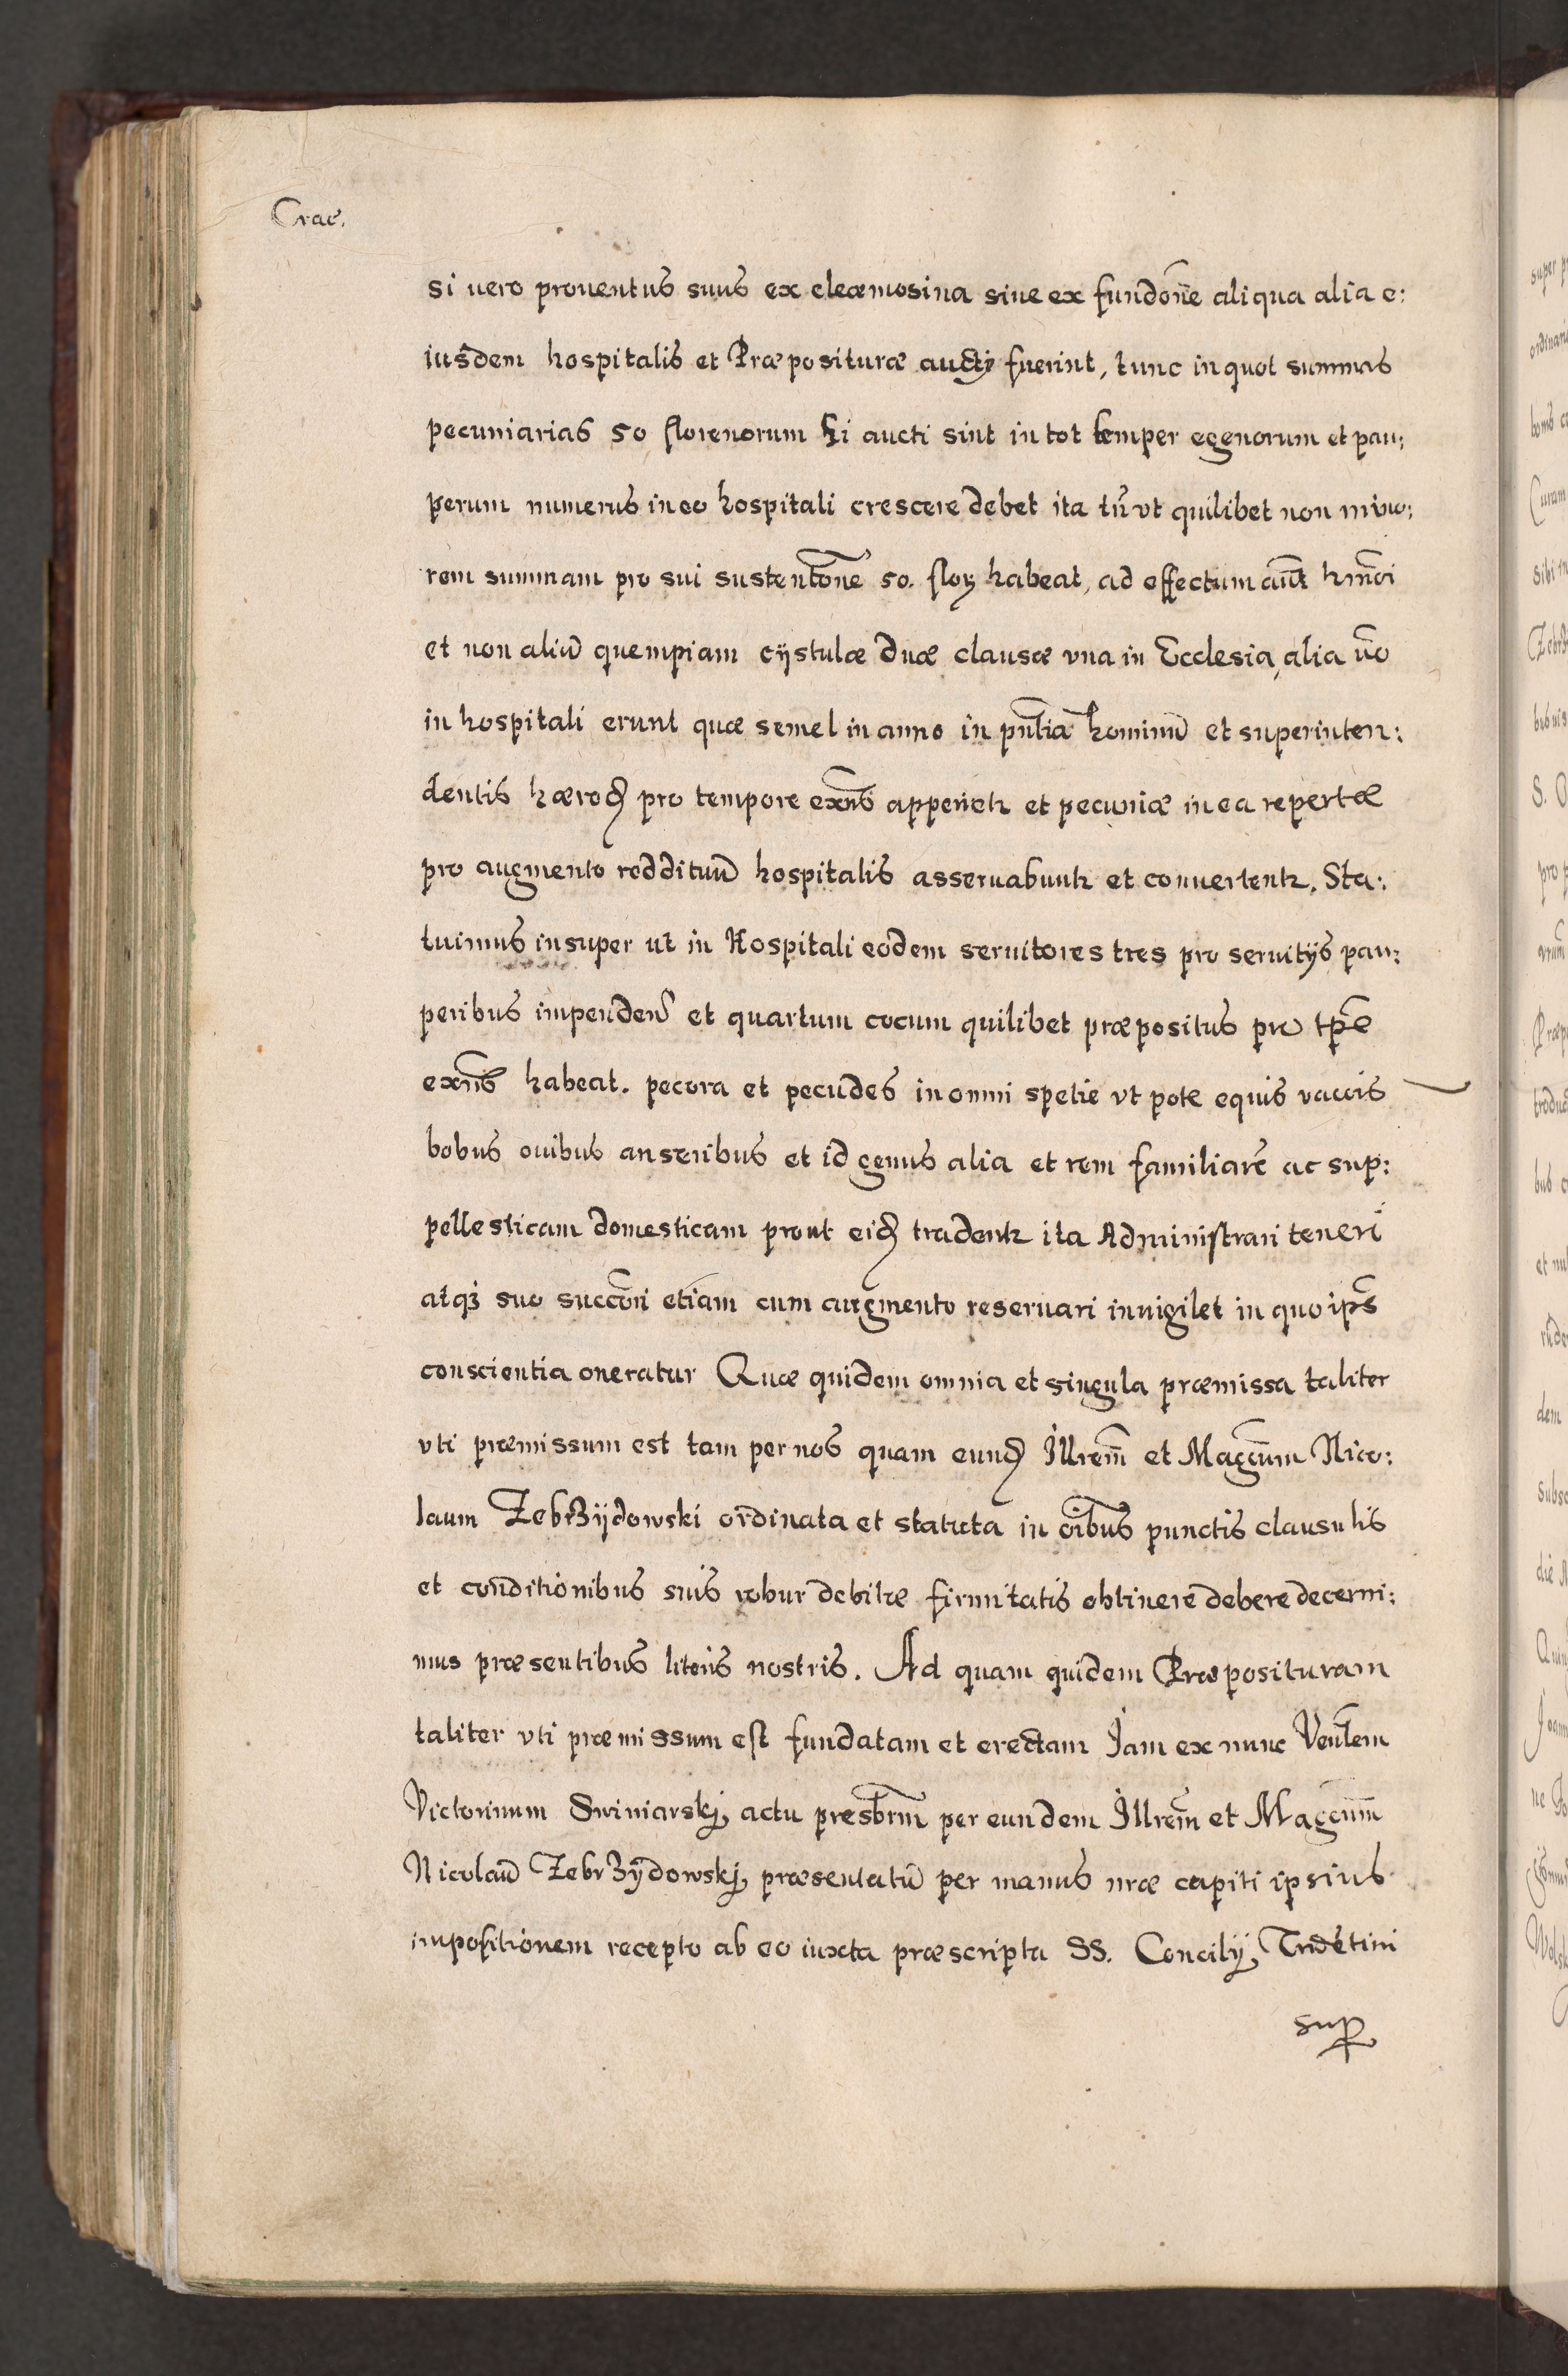 Crac.
si uero prouentus suus ex eleæmosina siue ex fundōne aliqua alia e:
iusdem hospitalis et Præpositurae auctj fuerint, tunc in quot summas
pecuniarias 50 florenorum hi aucti sint in tot semper egenorum et pau:
perum numerus in eo hospitali crescere debet ita tn̄ vt quilibet non mino:
rem summam pro sui sustentōne 50. floꝝ habeat, ad effectum aūt hm̄oi
et non aliū quempiam cystulæ duæ clausæ vna in Ecclesia, alia v̄o
in hospitali erunt quæ semel in anno in pn̄tia hominū et superinten:
dentis hæred pro tempore exn̄s apperietr et pecuniæ in ea repertæ
pro augmento reddituū hospitalis asseruabuntr et conuertentr. Sta:
tuimus insuper ut in Hospitali eodem seruitores tres pro seruitijs pau:
peribus impenden̄ et quartum cocum quilibet præpositus pro tp̄e
exn̄s habeat. pecora et pecudes in omni spetie vt pote equis vaccis
bobus ouibus anseribus et id genus alia et rem familiarē ac sup:
pellesticam domesticam prout eid tradentr ita Administrari teneri
atqȝ suo succōri etiam cum augmento reseruari inuigilet in quo ips̄
conscientia oneratur Quæ quidem omnia et singula præmissa taliter
vti præmissum est tam per nos quam eund Illrem̄ et Magcum̄ Nico:
laum Zebrzÿdowski ordinata et statuta in oībus punctis clausulis
et conditionibus suis robur debitæ firmitatis obtinere debere decerni:
mus præsentibus literis nostris. Ad quam quidem Præposituram
taliter vti præmissum est fundatam et erectam Jam ex nunc Ven̄lem
Victorinum Swiniarskj, actu presb̄rm per eundem Illrem̄ et Magcum̄
Nicolaū Zebrzÿdowskj, præsentatū per manus nr̄æ capiti ipsius
impositionem recepto ab eo iuxta præscripta SS. Concilij, Tridētini
sup